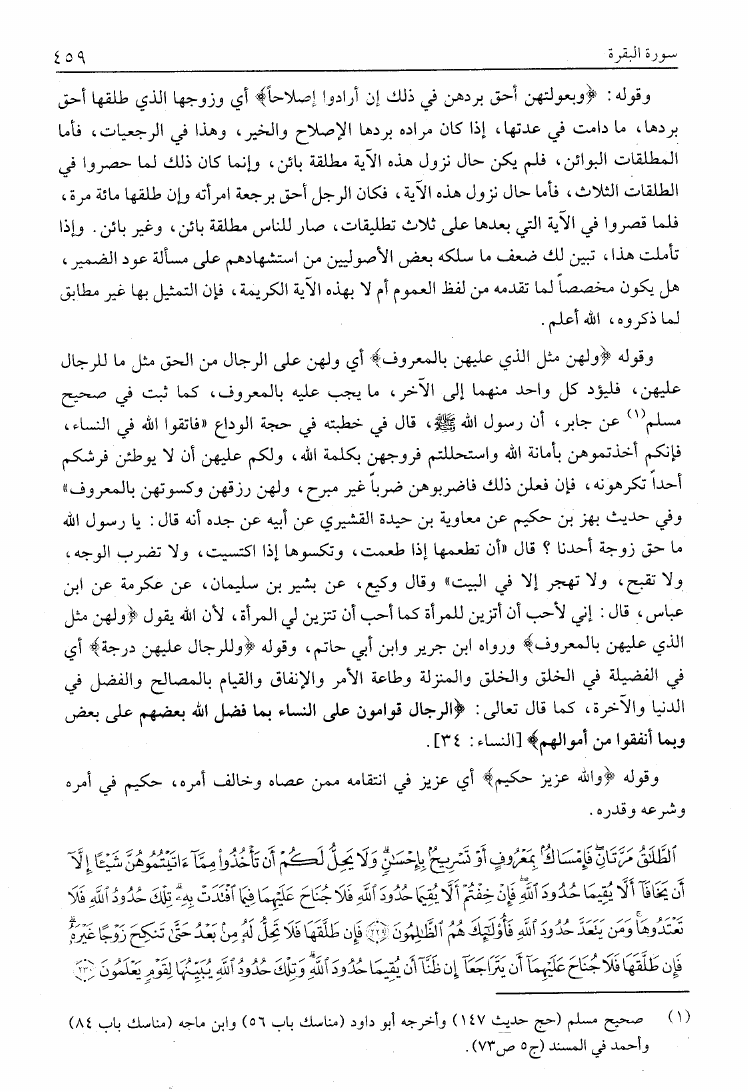 سورة البقرة ٤٥٩
وقوله: ﴿وبعولتهن أحق بردهن في ذلك إن أرادوا إصلاحاً﴾ أي وزوجها الذي طلقها أحق
بردها، ما دامت في عدتها، إذا كان مراده بردها الإصلاح والخير، وهذا في الرجعيات، فأما
المطلقات البوائن، فلم يكن حال نزول هذه الآية مطلقة بائن، وإنما كان ذلك لما حصروا في
الطلقات الثلاث، فأما حال نزول هذه الآية، فكان الرجل أحق برجعة امرأته وإن طلقها مائة مرة،
فلما قصروا في الآية التي بعدها على ثلاث تطليقات، صار للناس مطلقة بائن، وغير بائن. وإذا
تأملت هذا، تبين لك ضعف ما سلكه بعض الأصوليين من استشهادهم على مسألة عود الضمير،
هل يكون مخصصاً لما تقدمه من لفظ العموم أم لا بهذه الآية الكريمة، فإن التمثيل بها غير مطابق
لما ذكروه، الله أعلم.
وقوله ﴿ولهن مثل الذي عليهن بالمعروف﴾ أي ولهن على الرجال من الحق مثل ما للرجال
عليهن، فليؤد كل واحد منهما إلى الآخر، ما يجب عليه بالمعروف، كما ثبت في صحيح
مسلم(١) عن جابر، أن رسول الله ﷺ، قال في خطبته في حجة الوداع «فاتقوا الله في النساء،
فإنكم أخذتموهن بأمانة الله واستحللتم فروجهن بكلمة الله، ولكم عليهن أن لا يوطئن فرشكم
أحداً تكرهونه، فإن فعلن ذلك فاضربوهن ضرباً غير مبرح، ولهن رزقهن وكسوتهن بالمعروف»
وفي حديث بهز بن حكيم عن معاوية بن حيدة القشيري عن أبيه عن جده أنه قال: يا رسول الله
ما حق زوجة أحدنا ؟ قال «أن تطعمها إذا طعمت، وتكسوها إذا اكتسيت، ولا تضرب الوجه،
ولا تقبح، ولا تهجر إلا في البيت» وقال وكيع، عن بشير بن سليمان، عن عكرمة عن ابن
عباس، قال: إني لأحب أن أتزين للمرأة كما أحب أن تتزين لي المرأة، لأن الله يقول ﴿ولهن مثل
الذي عليهن بالمعروف﴾ ورواه ابن جرير وابن أبي حاتم، وقوله ﴿وللرجال عليهن درجة﴾ أي
في الفضيلة في الخلق والخلق والمنزلة وطاعة الأمر والإنفاق والقيام بالمصالح والفضل في
الدنيا والآخرة، كما قال تعالى: ﴿الرجال قوامون على النساء بما فضل الله بعضهم على بعض
وبما أنفقوا من أموالهم﴾ [النساء: ٣٤].
وقوله ﴿والله عزيز حكيم﴾ أي عزيز في انتقامه ممن عصاه وخالف أمره، حكيم في أمره
وشرعه وقدره.
ٱلطَّلَٰقُ مَرَّتَانِۖ فَإِمْسَاكُۢ بِمَعْرُوفٍ أَوْ تَسْرِيحُۢ بِإِحْسَٰنٖۗ وَلَا يَحِلُّ لَكُمْ أَن تَأْخُذُوا۟ مِمَّآ ءَاتَيْتُمُوهُنَّ شَيْـًٔا إِلَّآ
أَن يَخَافَآ أَلَّا يُقِيمَا حُدُودَ ٱللَّهِۖ فَإِنْ خِفْتُمْ أَلَّا يُقِيمَا حُدُودَ ٱللَّهِ فَلَا جُنَاحَ عَلَيْهِمَا فِيمَا ٱفْتَدَتْ بِهِۦۗ تِلْكَ حُدُودُ ٱللَّهِ فَلَا
تَعْتَدُوهَاۚ وَمَن يَتَعَدَّ حُدُودَ ٱللَّهِ فَأُو۟لَٰٓئِكَ هُمُ ٱلظَّٰلِمُونَ ﴿٢٢٩﴾ فَإِن طَلَّقَهَا فَلَا تَحِلُّ لَهُۥ مِنۢ بَعْدُ حَتَّىٰ تَنكِحَ زَوْجًا غَيْرَهُۥۗ
فَإِن طَلَّقَهَا فَلَا جُنَاحَ عَلَيْهِمَآ أَن يَتَرَاجَعَآ إِن ظَنَّآ أَن يُقِيمَا حُدُودَ ٱللَّهِۗ وَتِلْكَ حُدُودُ ٱللَّهِ يُبَيِّنُهَا لِقَوْمٍ يَعْلَمُونَ ﴿٢٣٠﴾
(١) صحيح مسلم (حج حديث ١٤٧) وأخرجه أبو داود (مناسك باب ٥٦) وابن ماجه (مناسك باب ٨٤)
وأحمد في المسند (ج٥ ص٧٣).